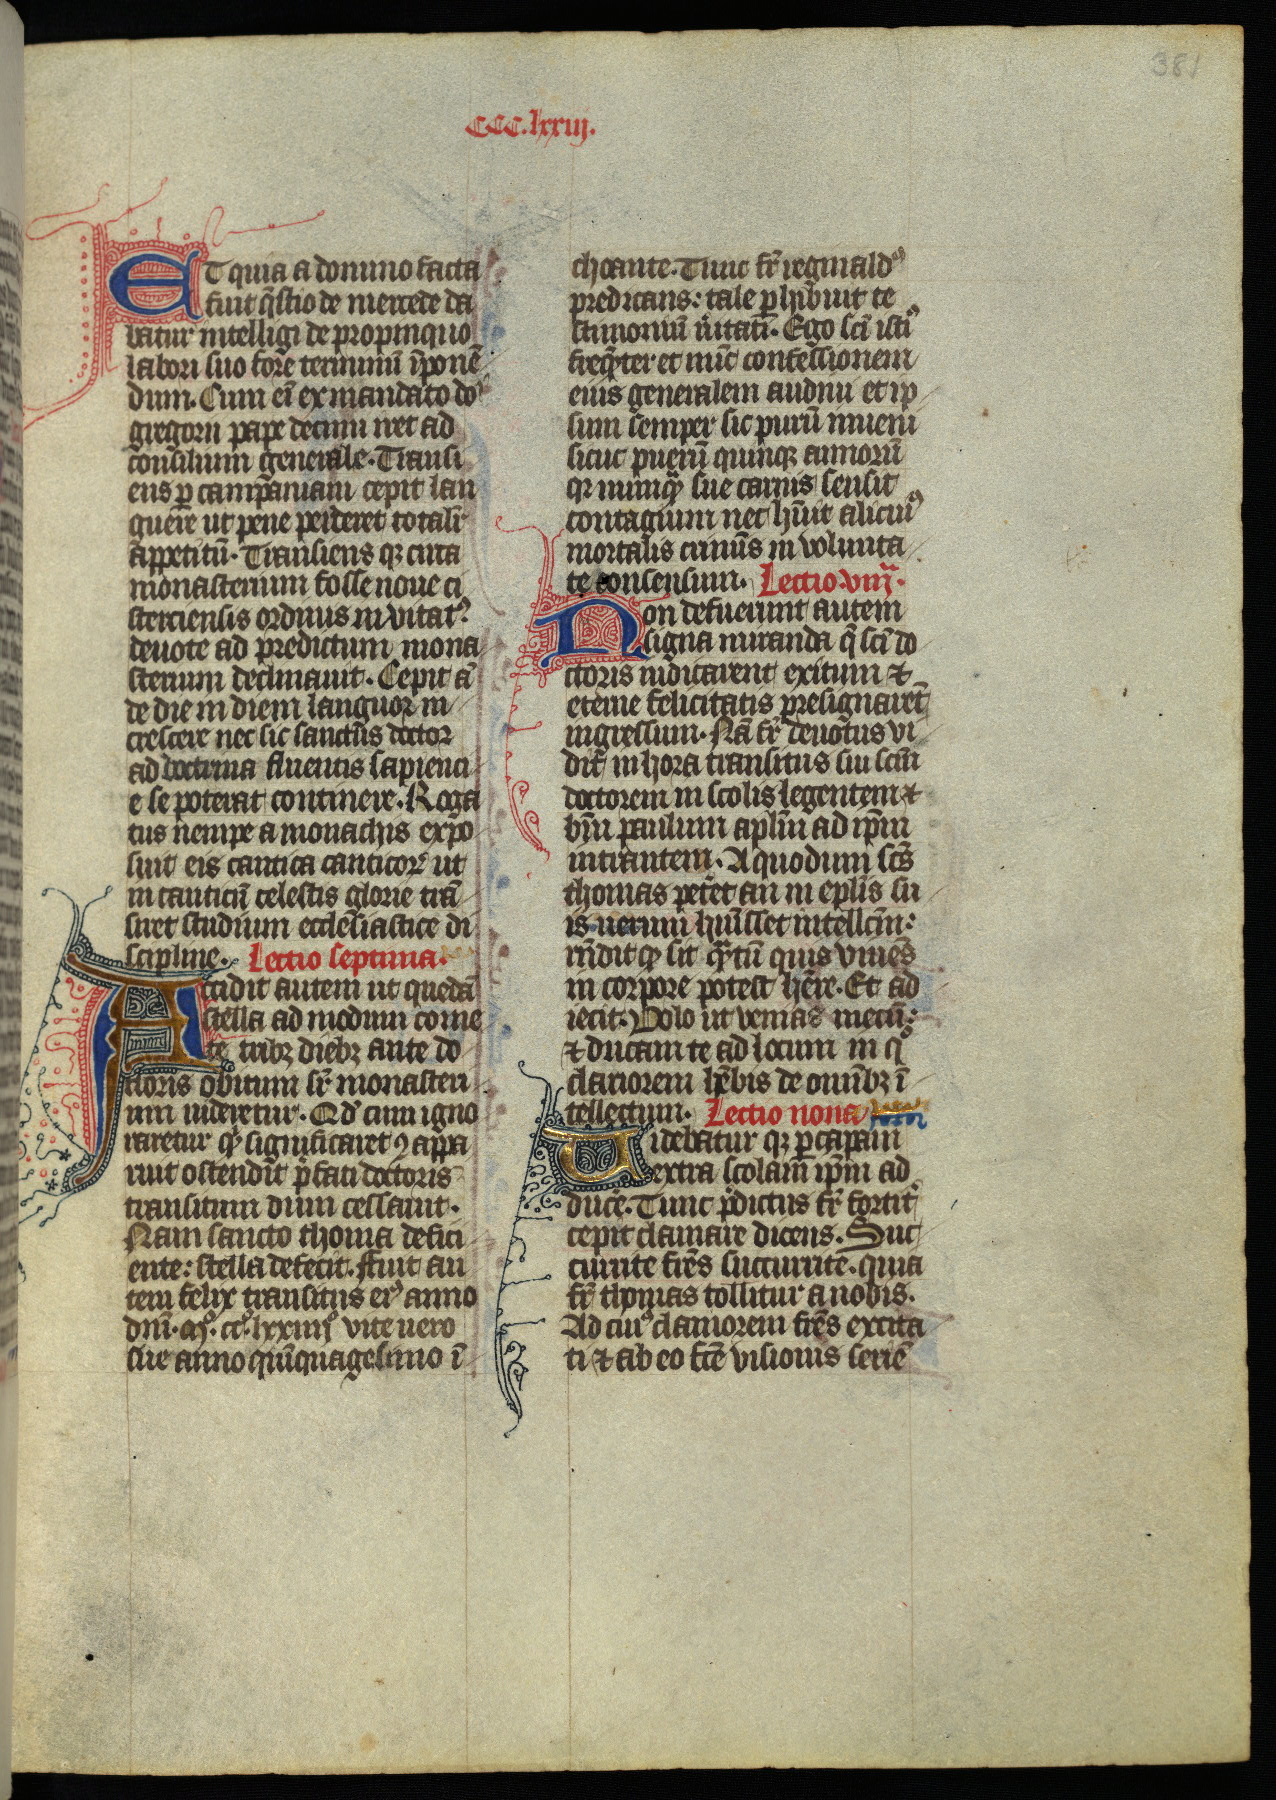 381
CCC.lxxiij.
ET quia a domino facta
fuit q̄stio de mercede da
batur intelligi de propinquo
labori suo fore terminū īponē
dum. Cum eī ex mandato do
gregorii pape decimi iret ad
consilium generale. Transi
ens ꝑ campaniam cepit lan
guere ut pene perderet totalr̄
appetitū. Transiens qꝫ circa
monasterium fosse noue ci
sterciensis ordinis invitatꝰ
deuote ad predictum mona
sterium declinauit. Cepit aū
de die in diem languor in
crescere nec sic sanctus doctor
ad doctrina fluentis sapienci
e se poterat continere. Roga
tus nempe a monachis expo
suit eis cantica canticoꝝ ut
in canticū celestis glorie trā
siret studium ecclesiastice di
scipline. Lectio septima.
Accidit autem ut quedā
stella ad modum come
te tribꝫ diebꝫ ante do
ctoris obitum sr̄ monasteri
um uideretur. Qd' cum igno
raretur qͥd significaret ꝯ appa
ruit ostendit p̄fati doctoris
transitum dum cessauit.
Nam sancto thoma defici
ente: stella defecit. Fuit au
tem felix transitus eiꝰ anno
dn̄i. mͦ. ccͦ. lxxiiijͦ vite uero
sue anno quīquagesimo ī
choante. Tunc fr̄ reginaldꝰ
predicans: tale ꝑhibuit te
stimonium ūitatī. Ego sc̄i istiꝰ
freq̄nter et nūc confessionem
eius generalem audiui et ip
sum semper sic purū inueni
sicut puerū quinqꝫ annorū
qꝛ nunq̄ sue carnis sensit
contagium nec hūit alicuiꝰ
mortalis crimīs in volunta
te consensum. Lectio viij.
Non defuerunt autem
signa miranda q̄ sc̄i do
ctoris indicarent exitum ⁊
eterne felicitatis presignaret̄
ingressum. Nā fr̄ deuotus vi
dit̄ in hora transitus sui sc̄m
doctorem in scolis legentem ⁊
bm̄ paulum apl̄m ad ip̄m
intrantem. A quo dum sc̄s
thomas peteret an in epl̄is su
is uerum hūisset intellc̄m:
rn̄dit qꝫ sit q̄ntū quis viuēs
in corpore potest hēre. Et ad
iecit. Volo ut venias mecū:
⁊ ducam te ad locum in qͦ
clariorem hēbis de omībꝫ ī
tellectum. Lectio nona
Uidebatur qꝫ ꝑ capam
extra scolam ip̄m ad
duce. Tunc p̄dictus fr̄ fortit̄
cepit clamare dicens. Suc
currite fr̄es succurrite. quia
fr̄ thomas tollitur a nobis.
Ad cuiꝰ clamorem fr̄es excita
ti ⁊ ab eo fc̄e visionis seriē